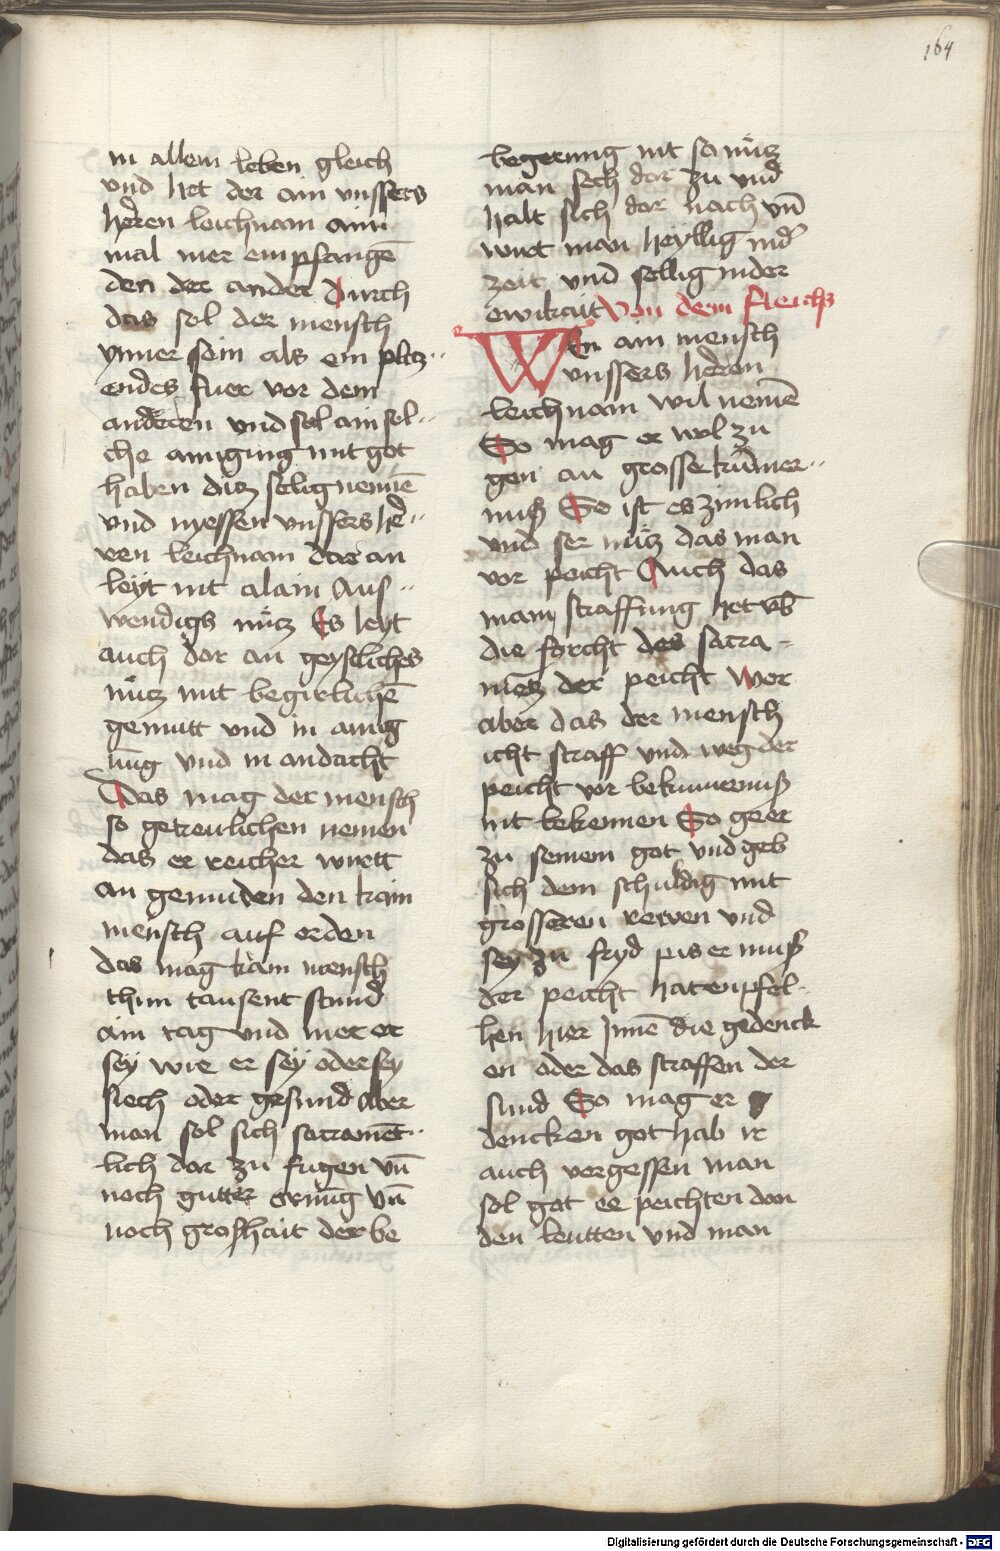 164
in allem leben gleich
vnd het der ain vnssers
heren leichnam ain
mal mer empfangē
den der ander Durch
das sol der mensch
ymer sein als ein pletz
endes fuer vor dem
anderen vnd sol ain sol
che ainigung mit got
haben dūtz selig nemē
vnd nyessen vnssers hē
ren leichnam dar an
leyt nit alain Aus
wendigs nütz Es leyt
auch dor an geystliches
nütz mit begirlichē
gemutt vnd in ainig
ūng vnd in andacht
Das mag der mensch
so getreulichen nemen
das er reicher wirtt
an genuden den kain
mensch auf erden
das mag kain mensch
thun tausent stund
ain tag vnd mer er
sey wie er sey oder sey
siech oder gesund Aber
man sol sich sacramēt
lich dar zu fugen vn̄
noch gutter ornūg vn̄
noch groshait der be
begerung nit so nütz
man sech dar zu vnd
halt sich dar nach vn̄
wirt man heyllig in d'
zeit vnd sellig in der
ewikait Von dem fleichs
WEn ain mensch
vnssers heren
leichnam wil nemē
So mag er wol zu
gen an grosse kūmer
nuß So ist es zimlich
vnd ser nütz das man
vor peicht Auch das
man straffung het vb
die forcht des sacra
mētz der peicht Wer
aber das der mensch
icht straff vnd weg der
peicht vor bekumernuß
nit bekennen So ge er
zu seinem got vnd geb
sich dem schuldig mit
grosseren rewen vnd
sey zu fryd pis er muß
der peicht hat enpfel
hen hier Jnnē die gedenck
en oder das straffen der
sund So mag er
dencken got hab ir
auch vergessen man
sol got ee peichten don
den leutten vnd man
Digitalisierung gefördert durch die Deutsche Forschungsgemeinschaft - DFG